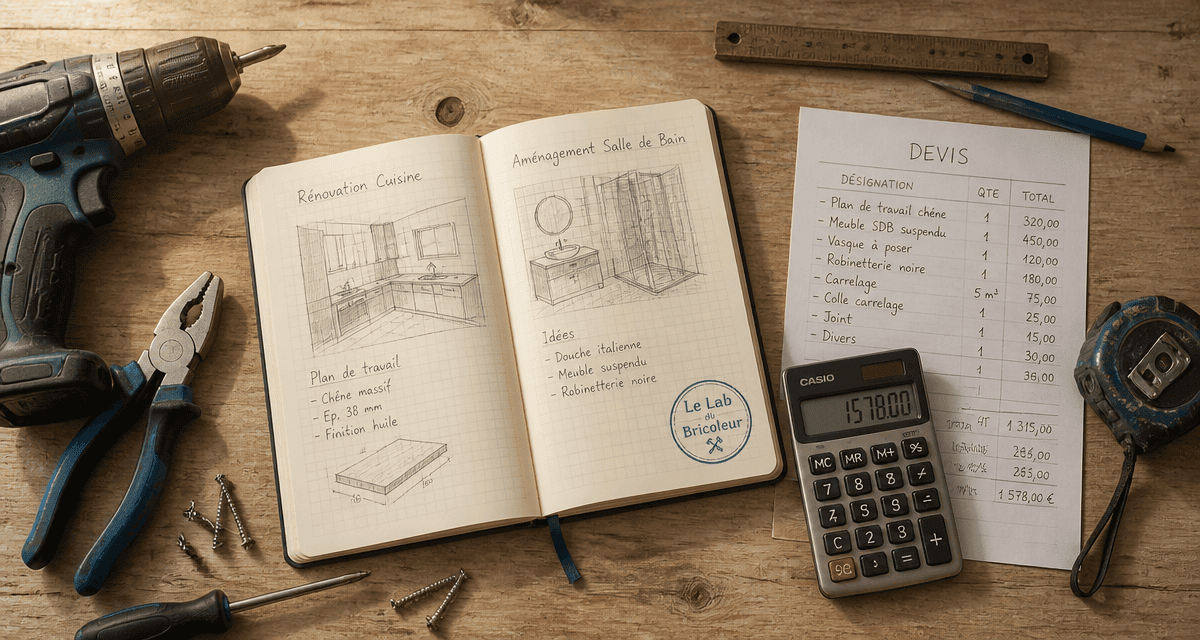 Rénovation Cuisine
Plan de travail
- Chêne massif
- Ep. 38 mm
- Finition huile
Aménagement Salle de Bain
Idées
- Douche italienne
- Meuble suspendu
- Robinetterie noire
Le Lab
du
Bricoleur
DEVIS
DÉSIGNATION QTE TOTAL
- Plan de travail chêne 1 320,00
- Meuble SDB suspendu 1 450,00
- Vasque à poser 1 120,00
- Robinetterie noire 1 180,00
- Carrelage 5 m² 75,00
- Colle carrelage 1 25,00
- Joint 1 15,00
- Divers 1 30,00
1 36,00
HT 1 315,00
255,00
1 578,00 €
CASIO
1578.00
MC MR M+ %
7 8 8
5
C 2 3 = +